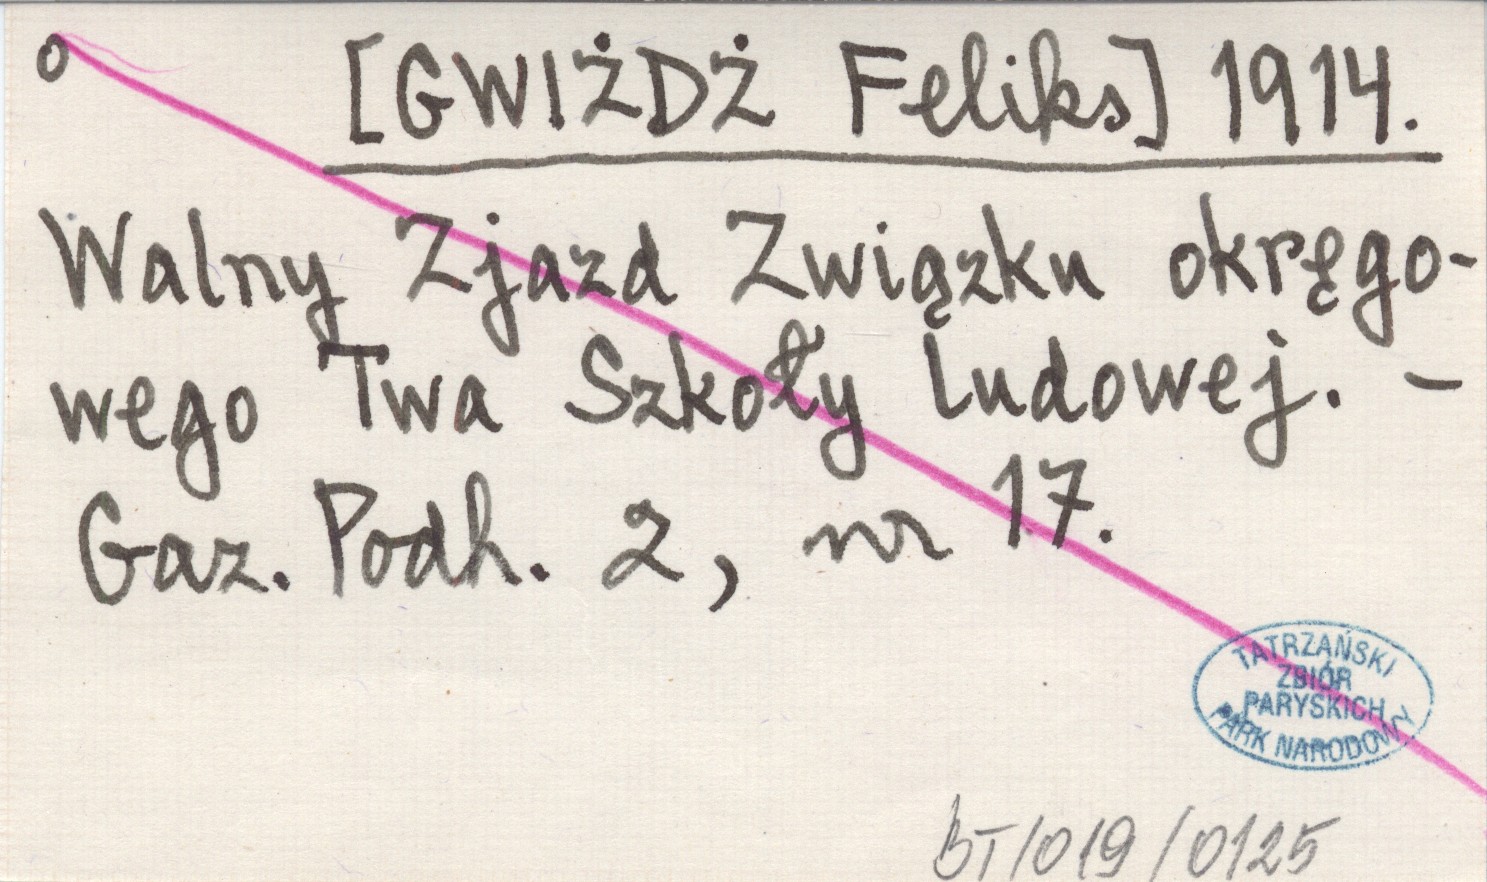 o [GWIŻDŻ Feliks] 1914.
Walny Zjazd Związku okręgo-
wego Twa Szkoły Ludowej. –
Gaz. Podh. 2, nr 17.
TATRZAŃSKI
ZBIÓR
PARYSKICH
PARK NARODOWY
BT/019/0125